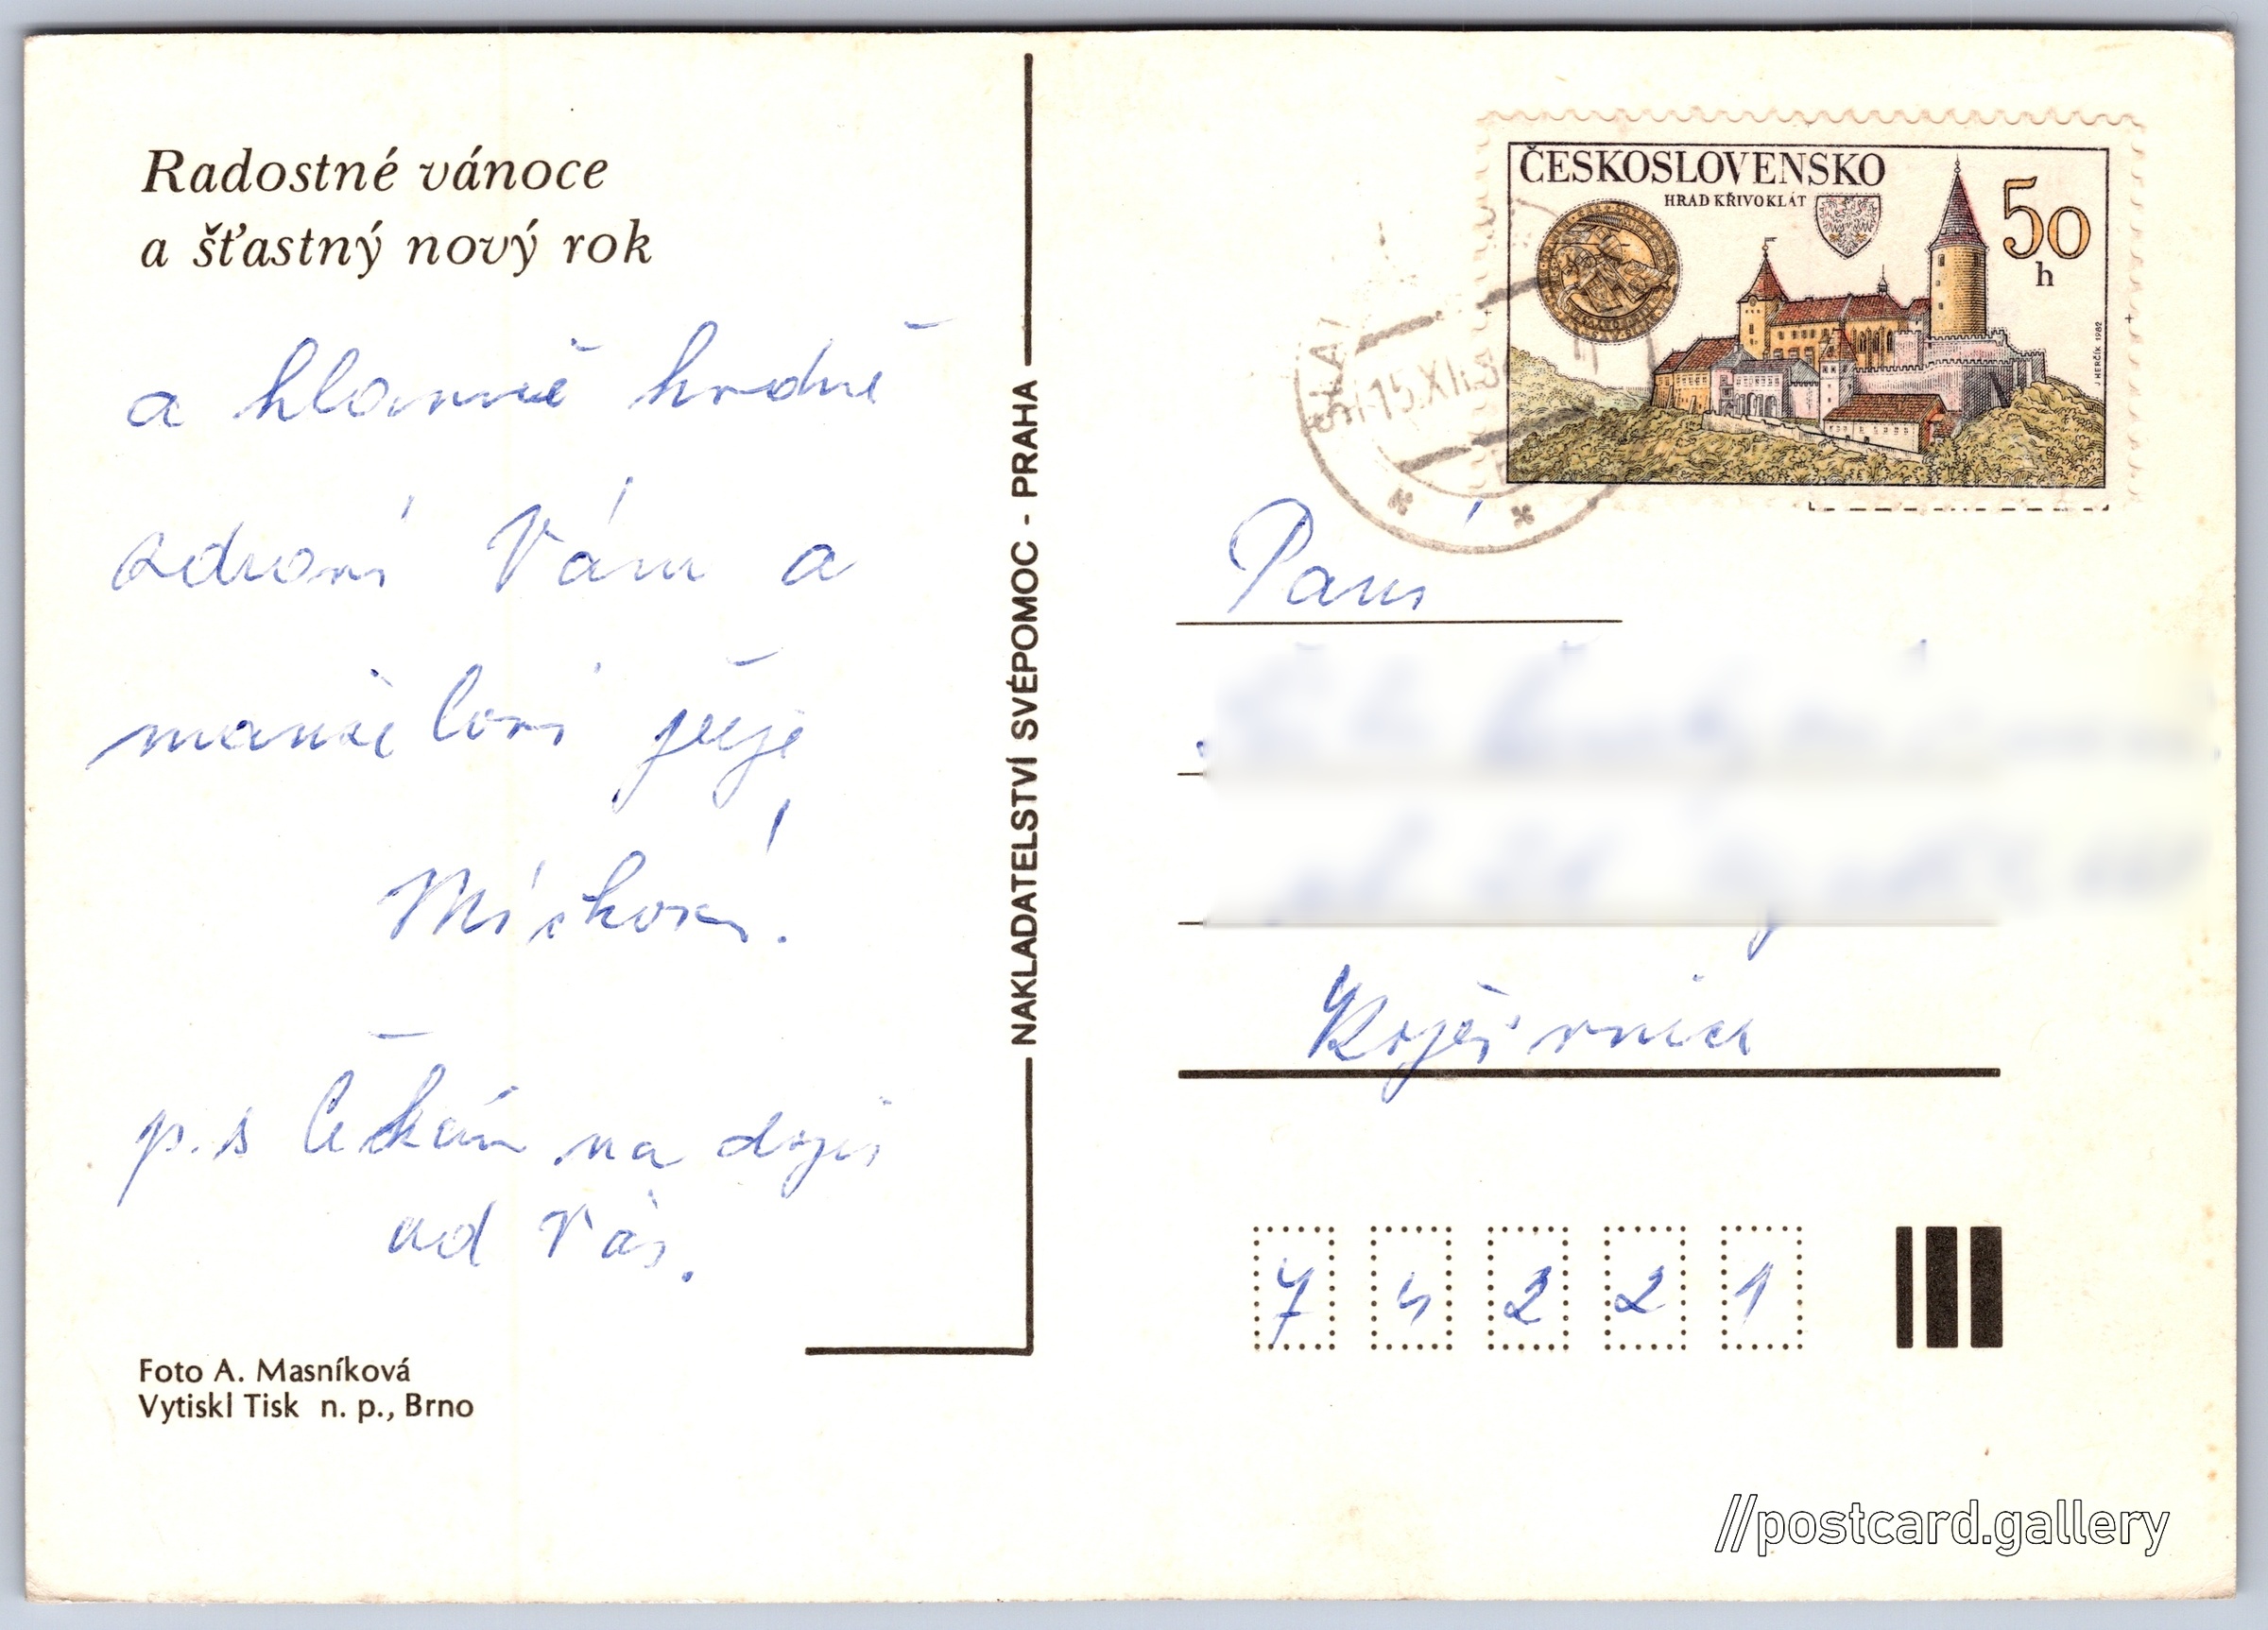 Radostné vánoce
a šťastný nový rok
a hlavně hodně
zdraví Vám a
manželovi přeje
Míčková.
p.s Čekám na dopis
od Vás.
Foto A. Masníková
Vytiskl Tisk n. p., Brno
NAKLADATELSTVÍ SVÉPOMOC - PRAHA
ČESKOSLOVENSKO
HRAD KŘIVOKLÁT
50
h
J. HERČÍK 1982
15.XII.
Paní
Kopřivnice
7 4 2 2 1
//postcard.gallery